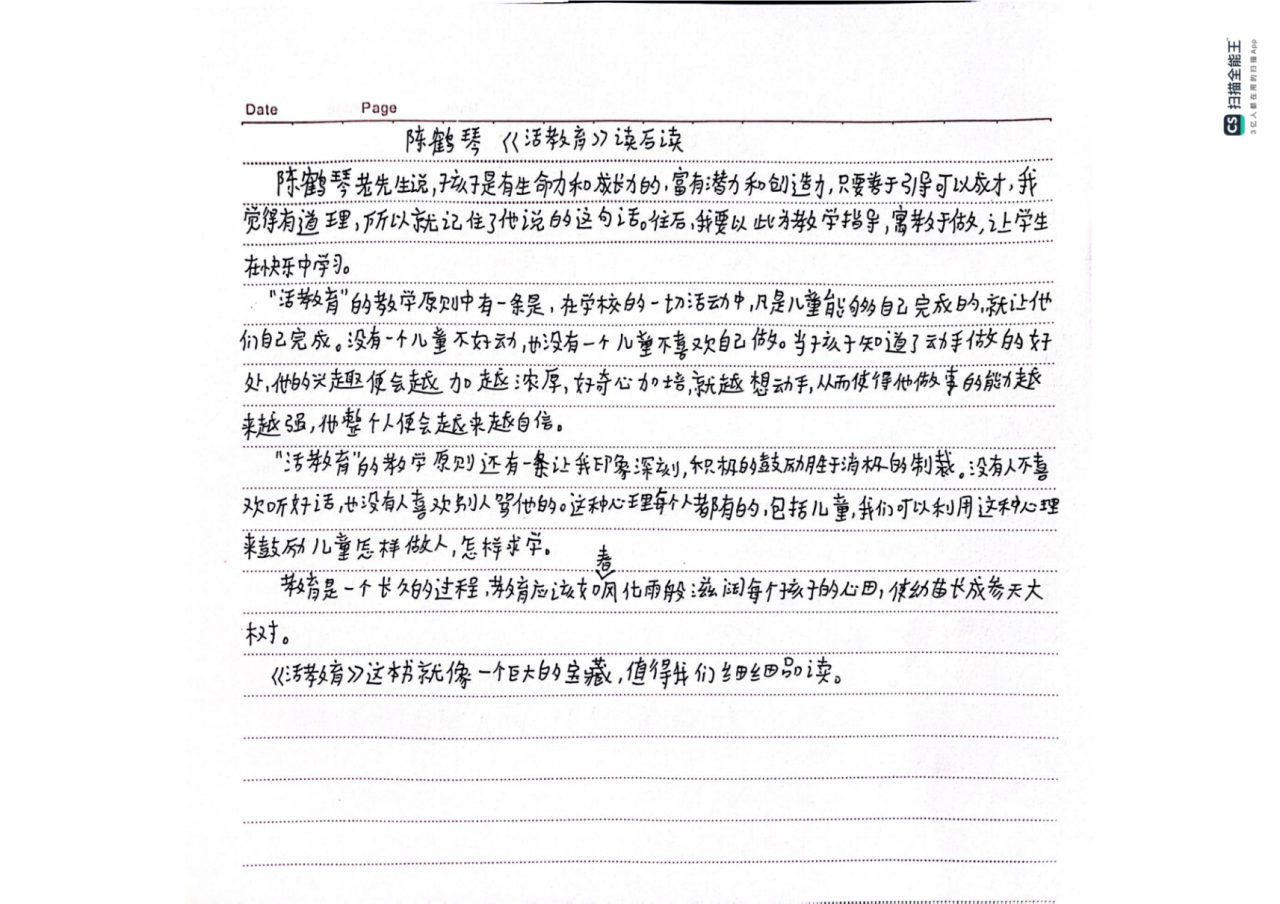 Date Page
陈鹤琴《活教育》读后读
陈鹤琴老先生说,孩子是有生命力和成长力的,富有潜力和创造力,只要善于引导可以成才,我
觉得有道理,所以就记住了他说的这句话。往后,我要以此为教学指导,寓教于做,让学生
在快乐中学习。
"活教育"的教学原则中有一条是,在学校的一切活动中,凡是儿童能够自己完成的,就让他
们自己完成。没有一个儿童不好动,也没有一个儿童不喜欢自己做。当孩子知道了动手做的好
处,他的兴趣便会越加越浓厚,好奇心加培,就越想动手,从而使得他做事的能力越
来越强,他整个人便会越来越自信。
"活教育"的教学原则还有一条让我印象深刻,积极的鼓励胜于消极的制裁。没有人不喜
欢听好话,也没有人喜欢别人骂他的。这种心理每个人都有的,包括儿童,我们可以利用这种心理
来鼓励儿童怎样做人,怎样求学。
教育是一个长久的过程,教育应该如春风化雨般滋润每个孩子的心田,使幼苗长成参天大
树。
《活教育》这本书就像一个巨大的宝藏,值得我们细细品读。
CS 扫描全能王
3亿人都在用的扫描App